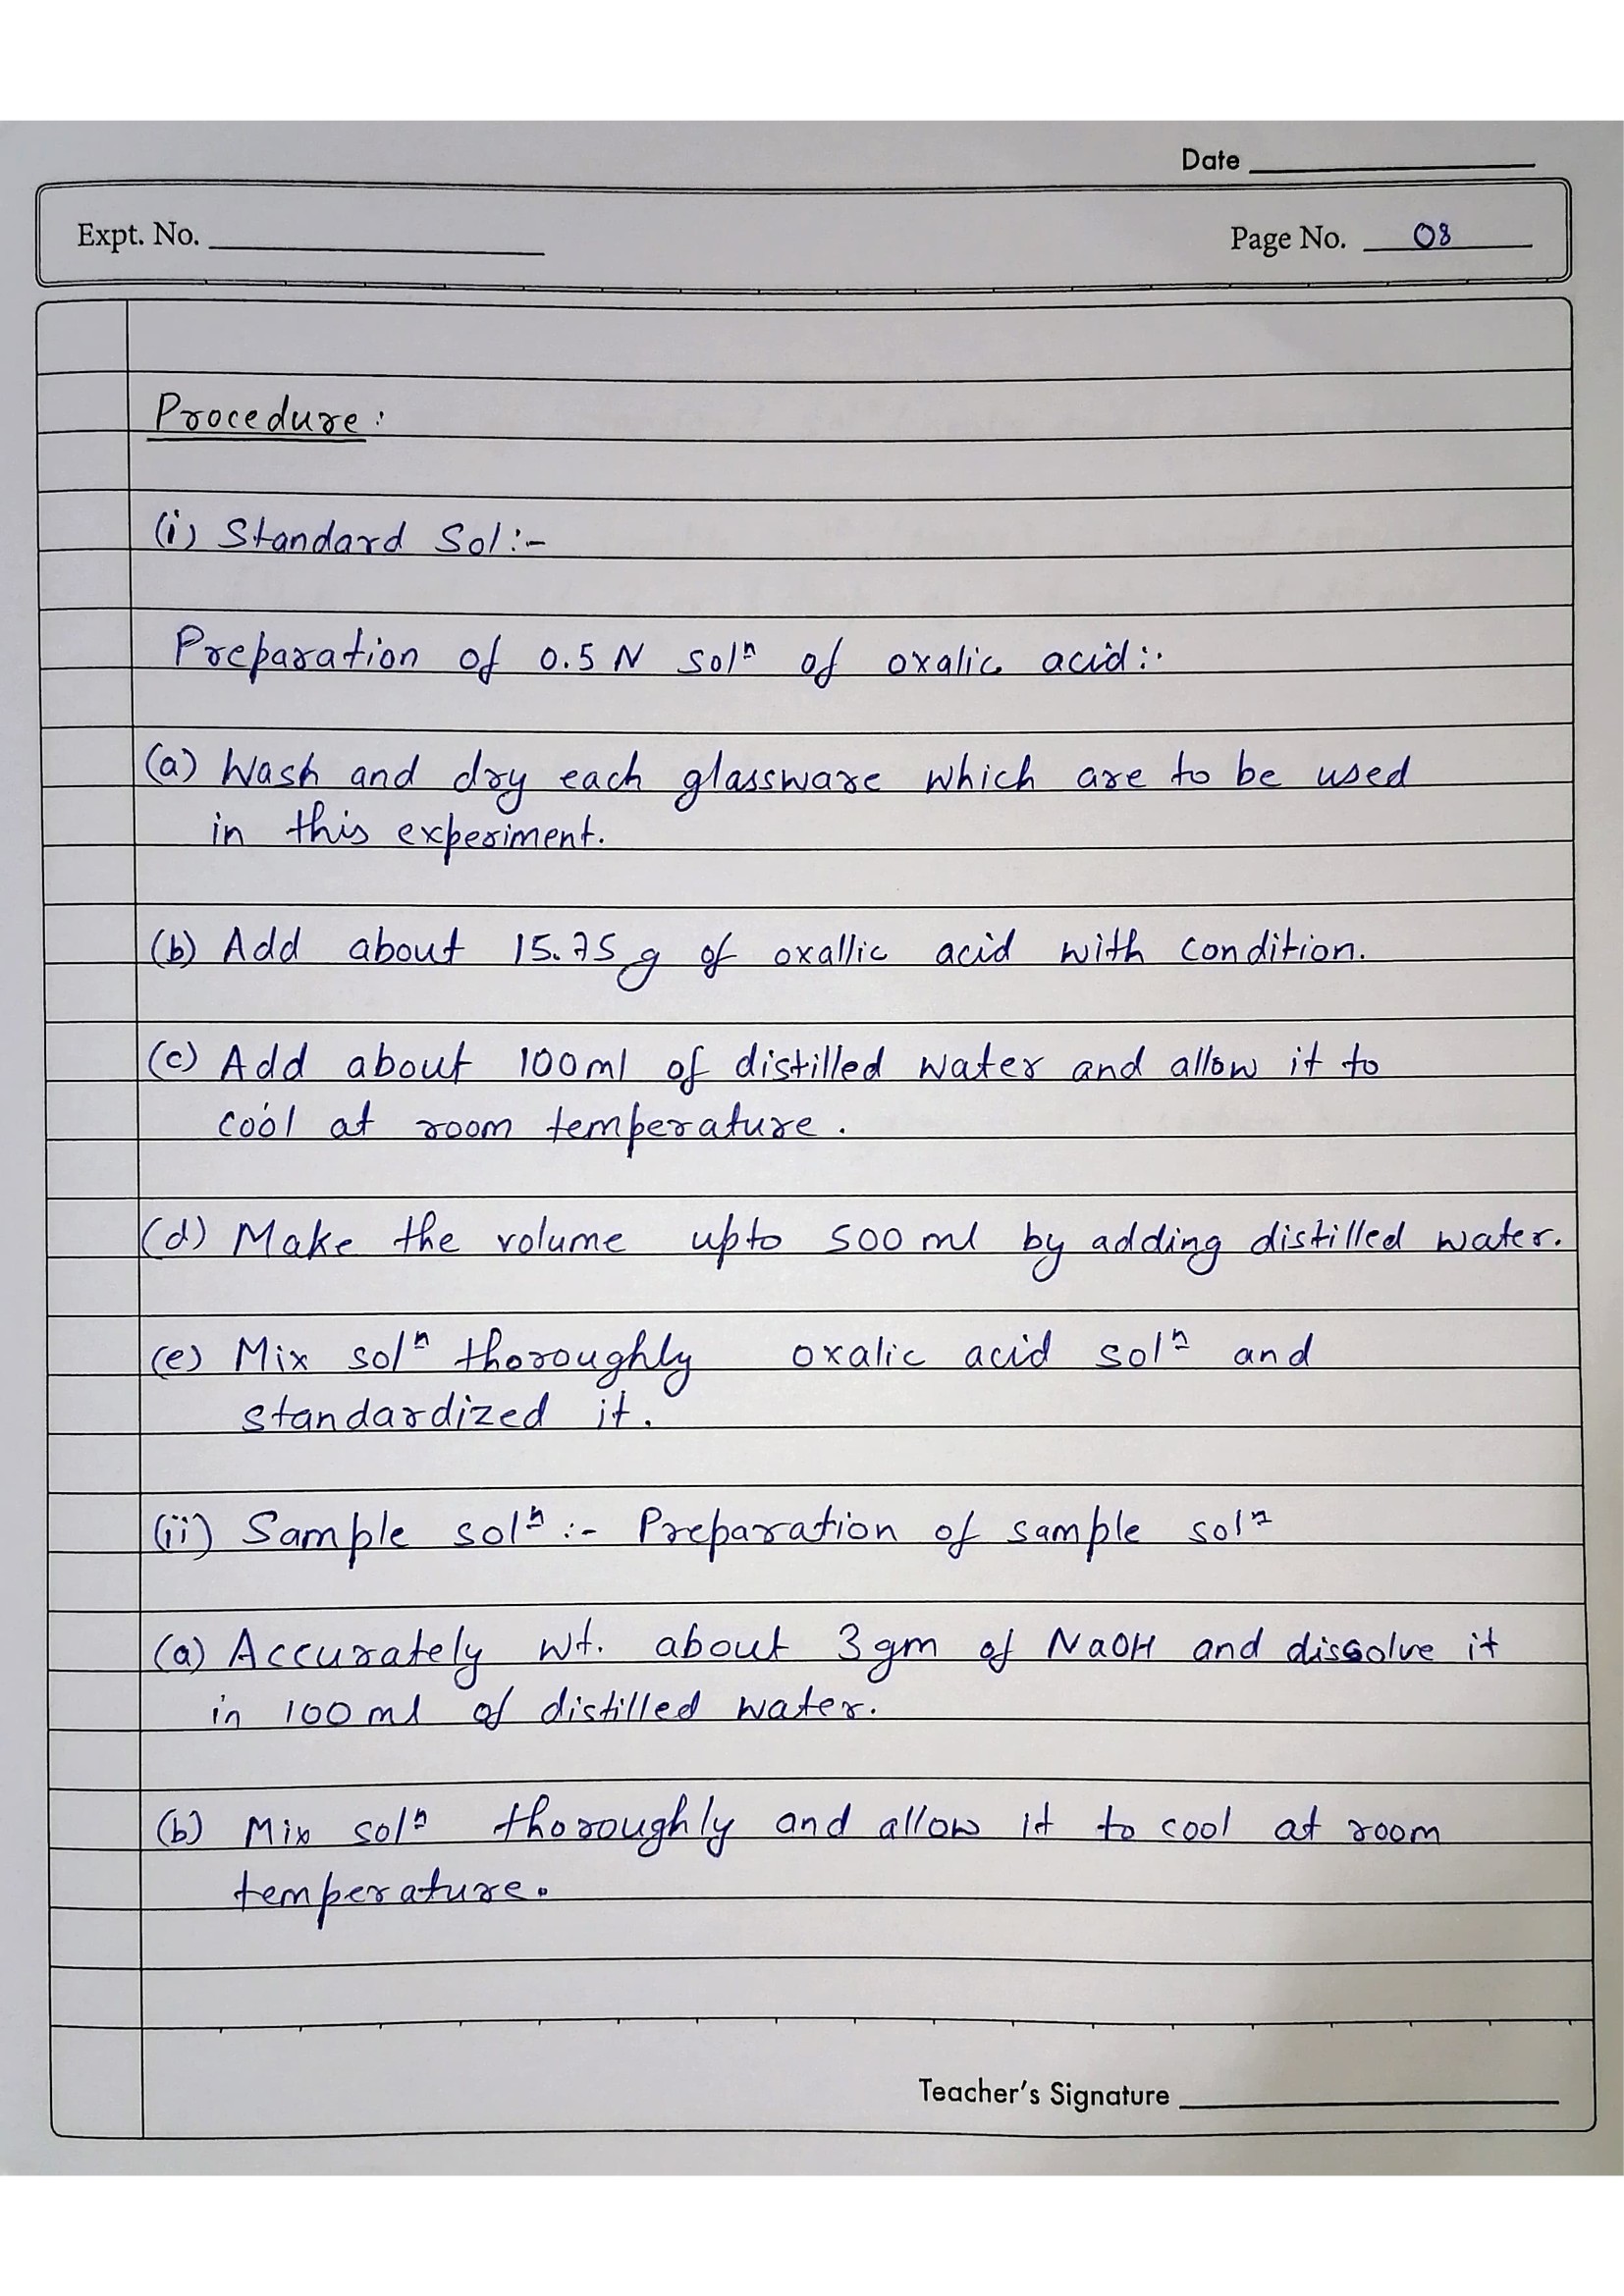 Date
Expt. No.
Page No. 08
Procedure:
(i) Standard Sol:-
Preparation of 0.5 N solⁿ of oxalic acid:-
(a) Wash and dry each glassware which are to be used
in this experiment.
(b) Add about 15.75 g of oxallic acid with condition.
(c) Add about 100 ml of distilled water and allow it to
cool at room temperature.
(d) Make the volume upto 500 ml by adding distilled water.
(e) Mix solⁿ thoroughly oxalic acid solⁿ and
standardized it.
(ii) Sample solⁿ :- Preparation of sample solⁿ
(a) Accurately wt. about 3 gm of NaOH and dissolve it
in 100 ml of distilled water.
(b) Mix solⁿ thoroughly and allow it to cool at room
temperature.
Teacher's Signature